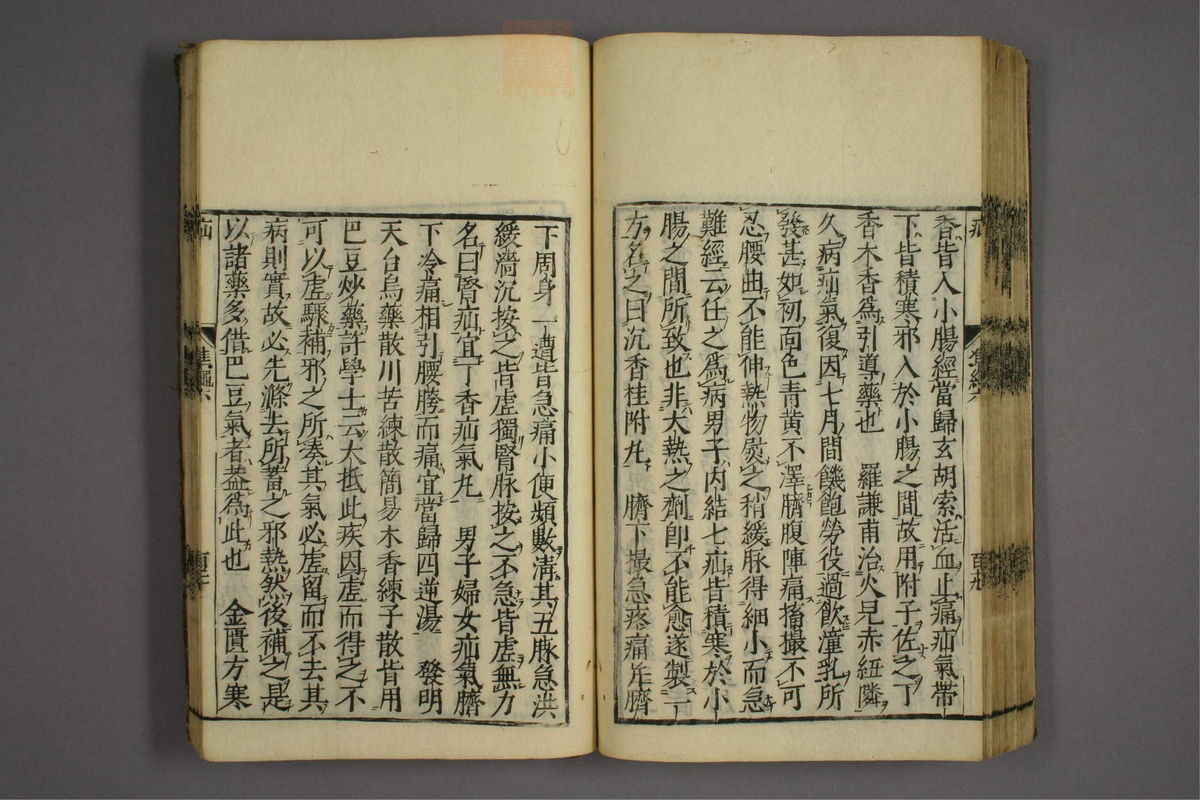 香皆入小腸經當歸玄胡索活血止痛疝氣帶
下皆積寒邪入於小腸之間故用附子佐之丁
香木香爲引導藥也　羅謙甫治火兒赤紐隣
久病疝氣復因七月間饑飽勞役過飲潼乳所
發甚如初面色青黄不澤臍腹陣痛搐撮不可
忍腰曲不能伸熱物熨之稍緩脉得細小而急
難經云任之爲病男子内結七疝皆積寒於小
腸之間所致也非大熱之劑即不能愈遂製一
方名之曰沉香桂附丸　臍下撮急疼痛并臍
下周身一遭皆急痛小便頻數清其五脉急洪
緩濇沉按之皆虚獨腎脉按之不急皆虚無力
名曰腎疝宜丁香疝氣丸　男子婦女疝氣臍
下冷痛相引腰胯而痛宜當歸四逆湯　發明
天台烏藥散川苦練散簡易木香練子散皆用
巴豆炒藥許學士云大抵此疾因虚而得之不
可以虚驟補邪之所湊其氣必虚留而不去其
病則實故必先滌去所蓄之邪熱然後補之是
以諸藥多借巴豆氣者蓋爲此也　金匱方寒